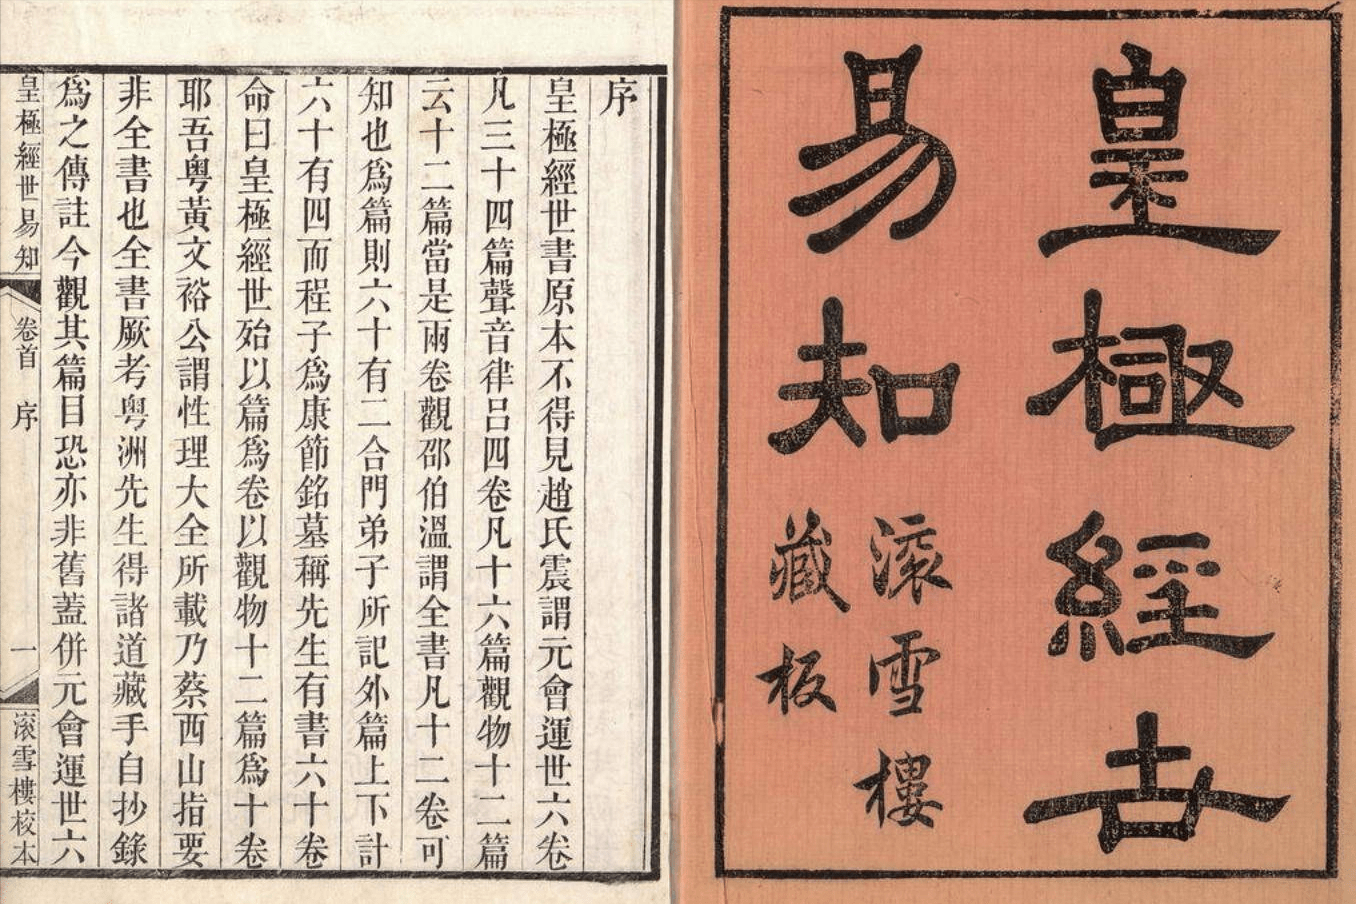 皇極經世
易知
滚雪樓
藏板
序
皇極經世書原本不得見趙氏震謂元會運世六卷
凡三十四篇聲音律呂四卷凡十六篇觀物十二篇
云十二篇當是兩卷觀邵伯溫謂全書凡十二卷可
知也爲篇則六十有二合門弟子所記外篇上下計
六十有四而程子爲康節銘墓稱先生有書六十卷
命曰皇極經世殆以篇爲卷以觀物十二篇爲十卷
耶吾粵黃文裕公謂性理大全所載乃蔡西山指要
非全書也全書厥考粵洲先生得諸道藏手自抄錄
爲之傳註今觀其篇目恐亦非舊蓋併元會運世六
皇極經世易知
卷首
序
一
滚雪樓校本